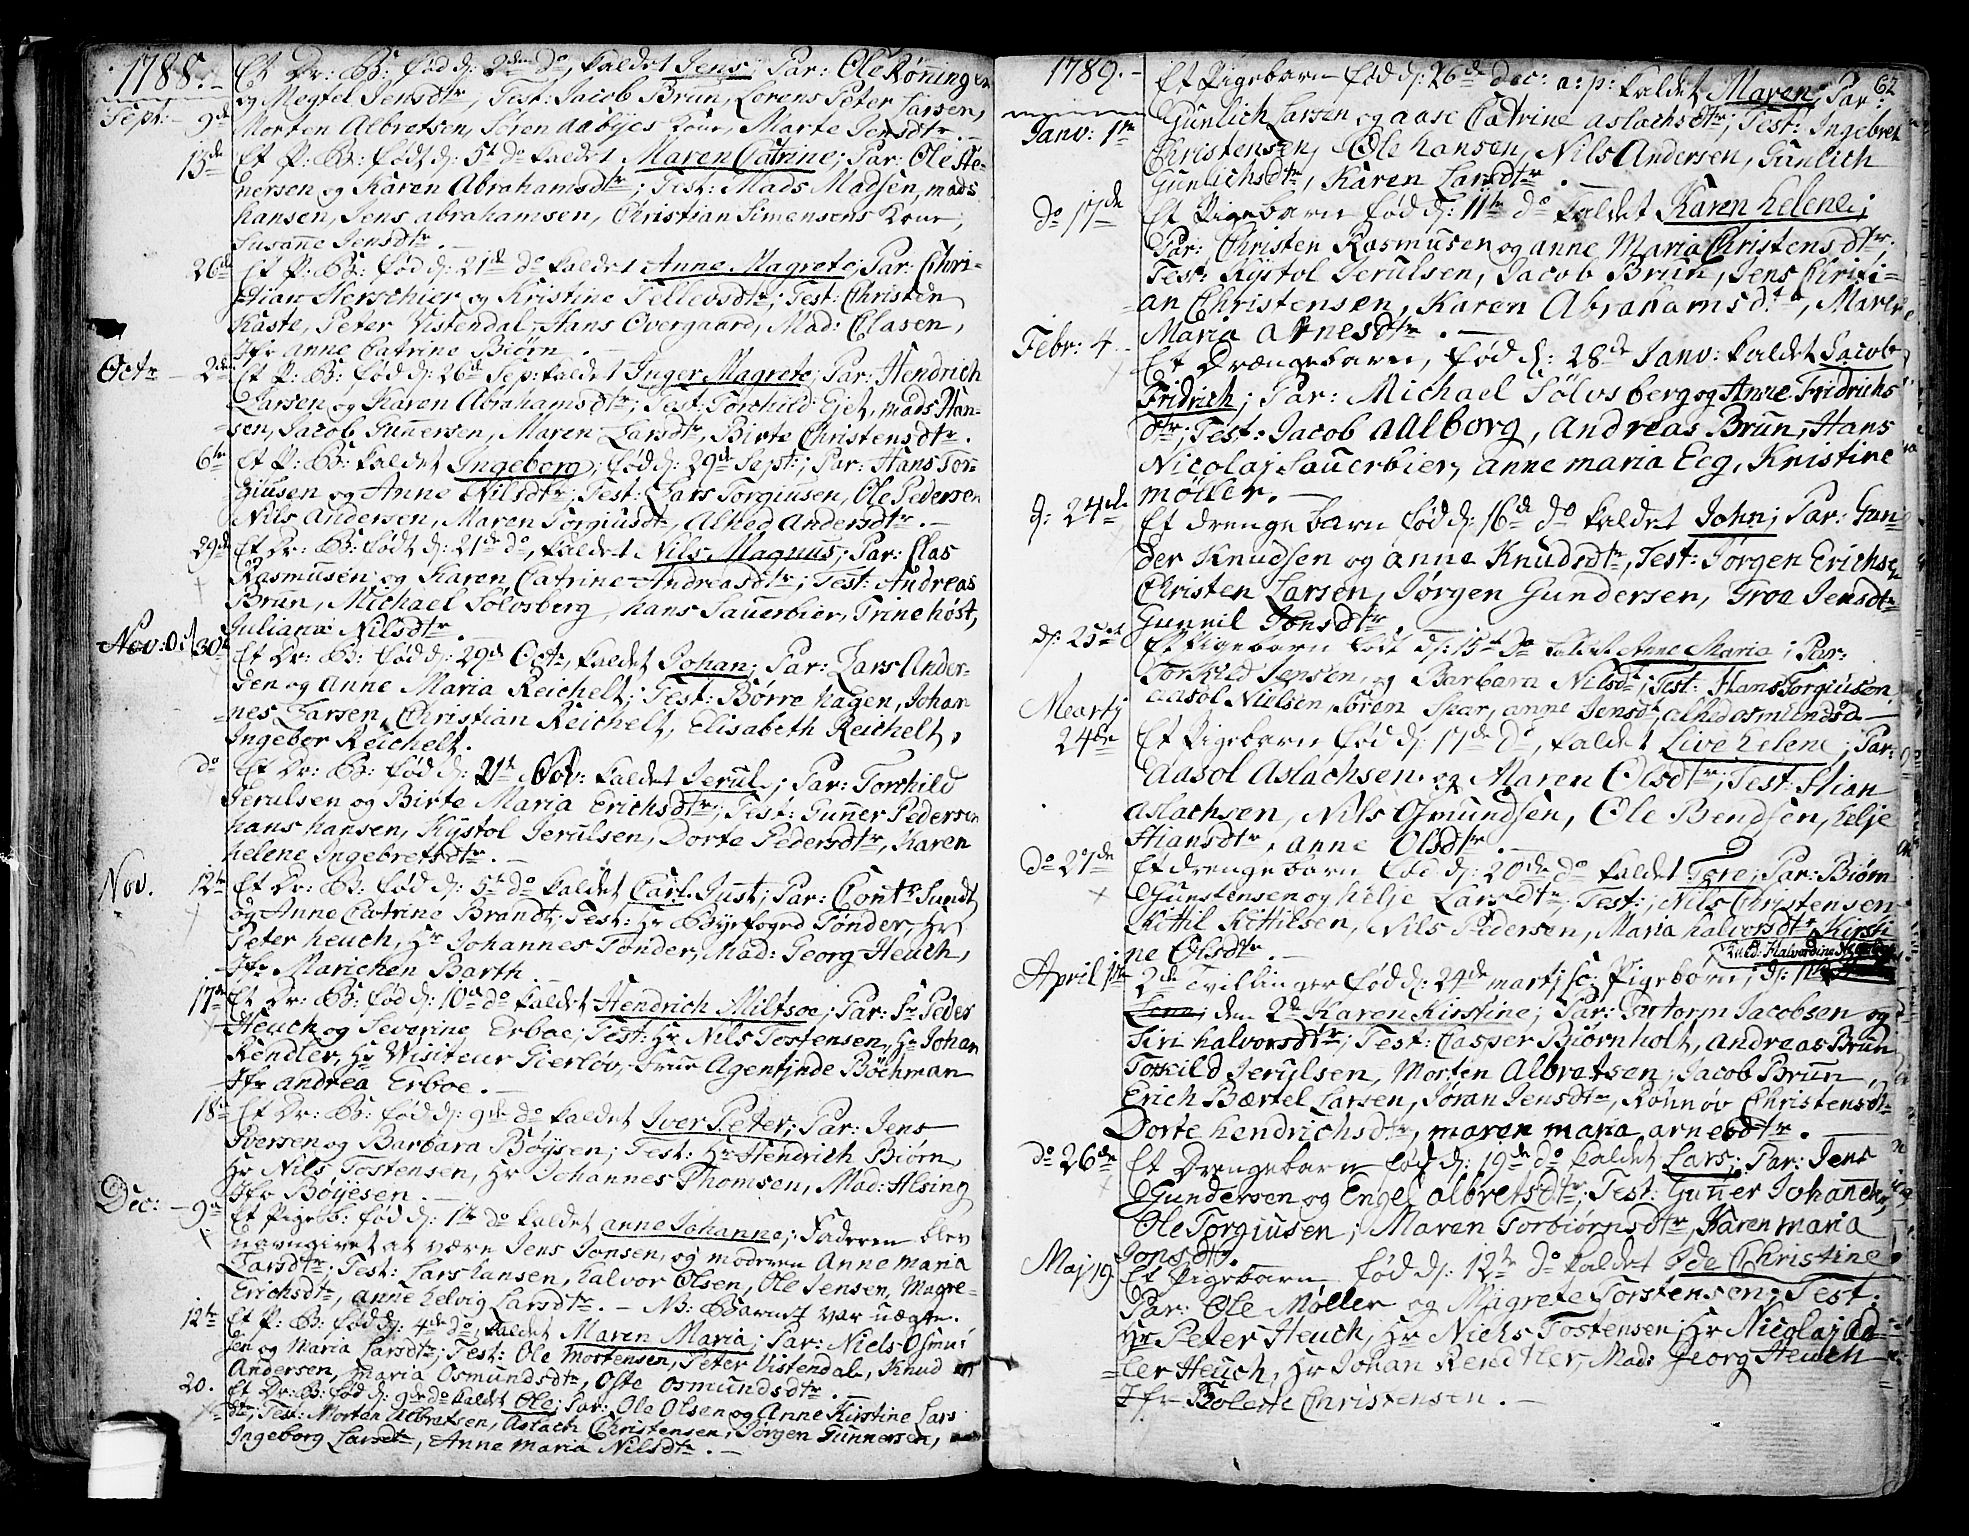 1788.
Et Dr: B: fød d: 2den do, kaldet Jens; Par: Ole Rønningen
og Megtel Jensdtr; Test: Jacob Brun, Lorens Peter Larsen,
Sept: 9de Morten Albretsen, Søren Aabÿes Kone, Marte Jensdtr. —
13de Et P: B: født d: 5t do kaldet Maren Catrine; Par: Ole He-
nersen og Karen Abrahamsdtr; Test: Mads Madsen, mads
hansen, Jens abrahamsen, Christian Simensens Kone,
Susanne Jensdtr. —
26d Et P: B: fød d: 21d do kaldet Anne Magrete; Par: Chri-
stian Herschier og Kristine Tellevsdtr; Test: Christen
Kaste, Peter Vistendal, Hans Overgaard, Mad: Clasen,
Jfr Anne Catrine Biørn. —
Octr — 2de Et P: B: fød d: 26d Sep: kaldet Inger Magrete; Par: Hendrich
Larsen og Karen Abrahamsdtr; Test: Torchild Ejet, mads Han-
sen, Jacob Gunnersen, Maren Larsdtr, Birte Christensdtr.
6te Et P: B: kaldet Ingeborg; fød d: 29d Sept:; Par: Hans Tor-
giusen og Anne Nilsdtr; Test: Lars Torgiusen, Ole Pedersen
Nils Andersen, Maren Torgiusdtr, Alhed Andersdtr. —
29de Et Dr: B: født d: 21de do, kaldet Nils Magnus; Par: Clas
Rasmusen og Karen Catrine Andreasdtr; Test: Andreas
Brun, Michael Sølvsberg, hans Sauerbier, Trine høst,
Juliana Nilsdtr.
Nov: 30 Et Dr: B: fød d: 29d Octr, kaldet Johan; Par: Lars Ander-
sen og Anne Maria Reichelt; Test: Børre hagen, Johan-
nes Larsen, Christian Reichelt, Elisabeth Reichelt,
Ingebor Reichelt.
do Et Dr: B: fød d: 21t Nov: kaldet Jerul; Par: Torchild
Jerulsen og Birte Maria Erichsdtr; Test: Gunner Pedersen
hans hansen, Kÿstol Jerulsen, Dorte Pedersdtr, Karen
helene Ingebretsdtr. —
Nov. 12te Et Dr: B: fød d: 5t do kaldet Carl Just; Par: Contr Sundt
og Anne Catrine Brandt; Test: Hr Bÿefoged Tønder, Hr
Peter Heuch, Hr Johannes Tønder, Mad: Georg Heuch,
Jfr Marichen Barth.
17de Et Dr: B: fød d: 10de do kaldet Hendrich Miltsoe; Par: Sr Peder
Heuch og Severine Erboe; Test: Hr Nils Tostensen, Hr Johan
Rendler, Hr Visiteur Tierløv, Frue Agentinde Bøchman
Jfr Andrea Erboe. —
18de Et Dr: B: fød d: 9de do kaldet Iver Peter; Par: Jens
Iversen og Barbara Bøÿsen; Test: Hr Hendrich Biørn,
Hr Nils Tostensen, Hr Johannes Thomsen, Mad: Alsing
Jfr Bøÿesen. —
Dec: — 9de Et Pigeb: fød d: 1te do kaldet Anne Johanne; Faderen blev
navngivet at være Jens Jonsen, og moderen Anne maria
Larsdtr. Test: Lars hansen, halvor Olsen, Ole Jensen, Magre-
Erichsdtr, anne helvig Larsdtr. — NB: Barnet var uægte.
12te Et P: B: fød d: 4de do, kaldet Maren Maria; Par: Niels Osmun
sen og Maria Larsdtr; Test: Ole Mortensen, Peter Vistendal, Knud
Andersen, Maria Osmundsdtr, Oste Osmundsdtr.
20. Et Dr: B: fød d: 9de do kaldet Ole; Par: Ole Olsen og Anne Kirstine Lars
dtr, Test: Morten Albretsen, Aslach Christensen, Jørgen Gunnersen,
Ingeborg Larsdtr, Anne Maria Nilsdtr. —
62
1789. —
Et Pigebarn fød d: 26de Dec: a: p: kaldet Maren; Par:
Janv: 1te Gunlich Larsen og Aase Catrine Aslachsdtr; Test: Ingebret
Christensen, Ole hansen, Nils Andersen, Gunlich
Gunlichsdtr, Karen Larsdtr.
do 17de Et Pigebarn fød d: 11te do kaldet Karen helene;
Par: Christen Rasmusen og Anne Maria Christensdtr.
Test: Kÿstol Jerulsen, Jacob Brun, Jens Christi-
an Christensen, Karen Abrahamsdtr, Maren
Maria Arnesdtr. —
Febr: 4 Et Drængebarn, fød d: 28de Janv: kaldet Jacob
Fridrich; Par: Michael Sølvsberg og Anne Fridrichs
dtr; Test: Jacob Aalborg, Andreas Brun, Hans
Nicolaj Sauerbier, Anne maria Eeg, Kristine
møller. —
d: 24de Et drengebarn fød d: 16d do kaldet John; Par: Gun-
der Knudsen og Anne Knudsdtr, Test: Jørgen Erichsen
Christen Larsen, Jørgen Gundersen, Groa Jensdtr
Gunnil Jonsdtr.
d: 25de Et Pigebarn født d: 15de do kaldet Anne Maria; Par:
Torkild Jensen, og Barbara Nilsdtr; Test: Hans Torgiusen
Aasol Nielsen, Søren Spar, Anne Jensdtr, alhed osmundsd —
Martj
24de Et Pigebarn fød d: 17de do, kaldet Live helene; Par:
Aasol Aslachsen og Maren Olsdtr; Test: Stian
Aslachsen, Nils Osmundsen, Ole Bendsen, helje
Stiansdtr, anne Olsdtr. —
do 27de Et drengebarn fød d: 20de do kaldet Tore; Par: Biørn
Gunstensen og helje Larsdtr; Test: Nils Christensen
Kittil Kittilsen, Nils Pedersen, Maria halvorsdtr, Kirsti-
ne Olsdtr.
April 1te 2de Tvillinger fød d: 24de martj sc: Pigebørn; d:
Lene; den 2d Karen Kirstine; Par: Gutorm Jacobsen og
Siri halvorsdtr; Test: Casper Biørnholt, Andreas Brun
Torkild Jerulsen, Morten Albretsen, Jacob Brun,
Erich Bærtel Larsen, Søran Jensdtr, Rønnov Christensdtr
Dorte hendrichsdtr, maren maria arnesdtr. —
do 26de Et Drengebarn fød d: 19de do kaldet Lars; Par: Jens
Gundersen og Engel Albretsdtr; Test: Gunner Johannes,
Ole Torgiusen; Maren Torbiørnsdtr, Karen maria
Jonsdtr.
Maj 19. Et Pigebarn fød d: 12te do kaldet Ide Christine
Par: Ole Møller og Magrete Torstensen; Test.
Hr Peter Heuch, Hr Niels Tostensen, Hr Nicolaj Ad-
ler Heuch, Hr Johan Rendtler, Mad: Georg Heuch
Jfr Bolette Christensen. —